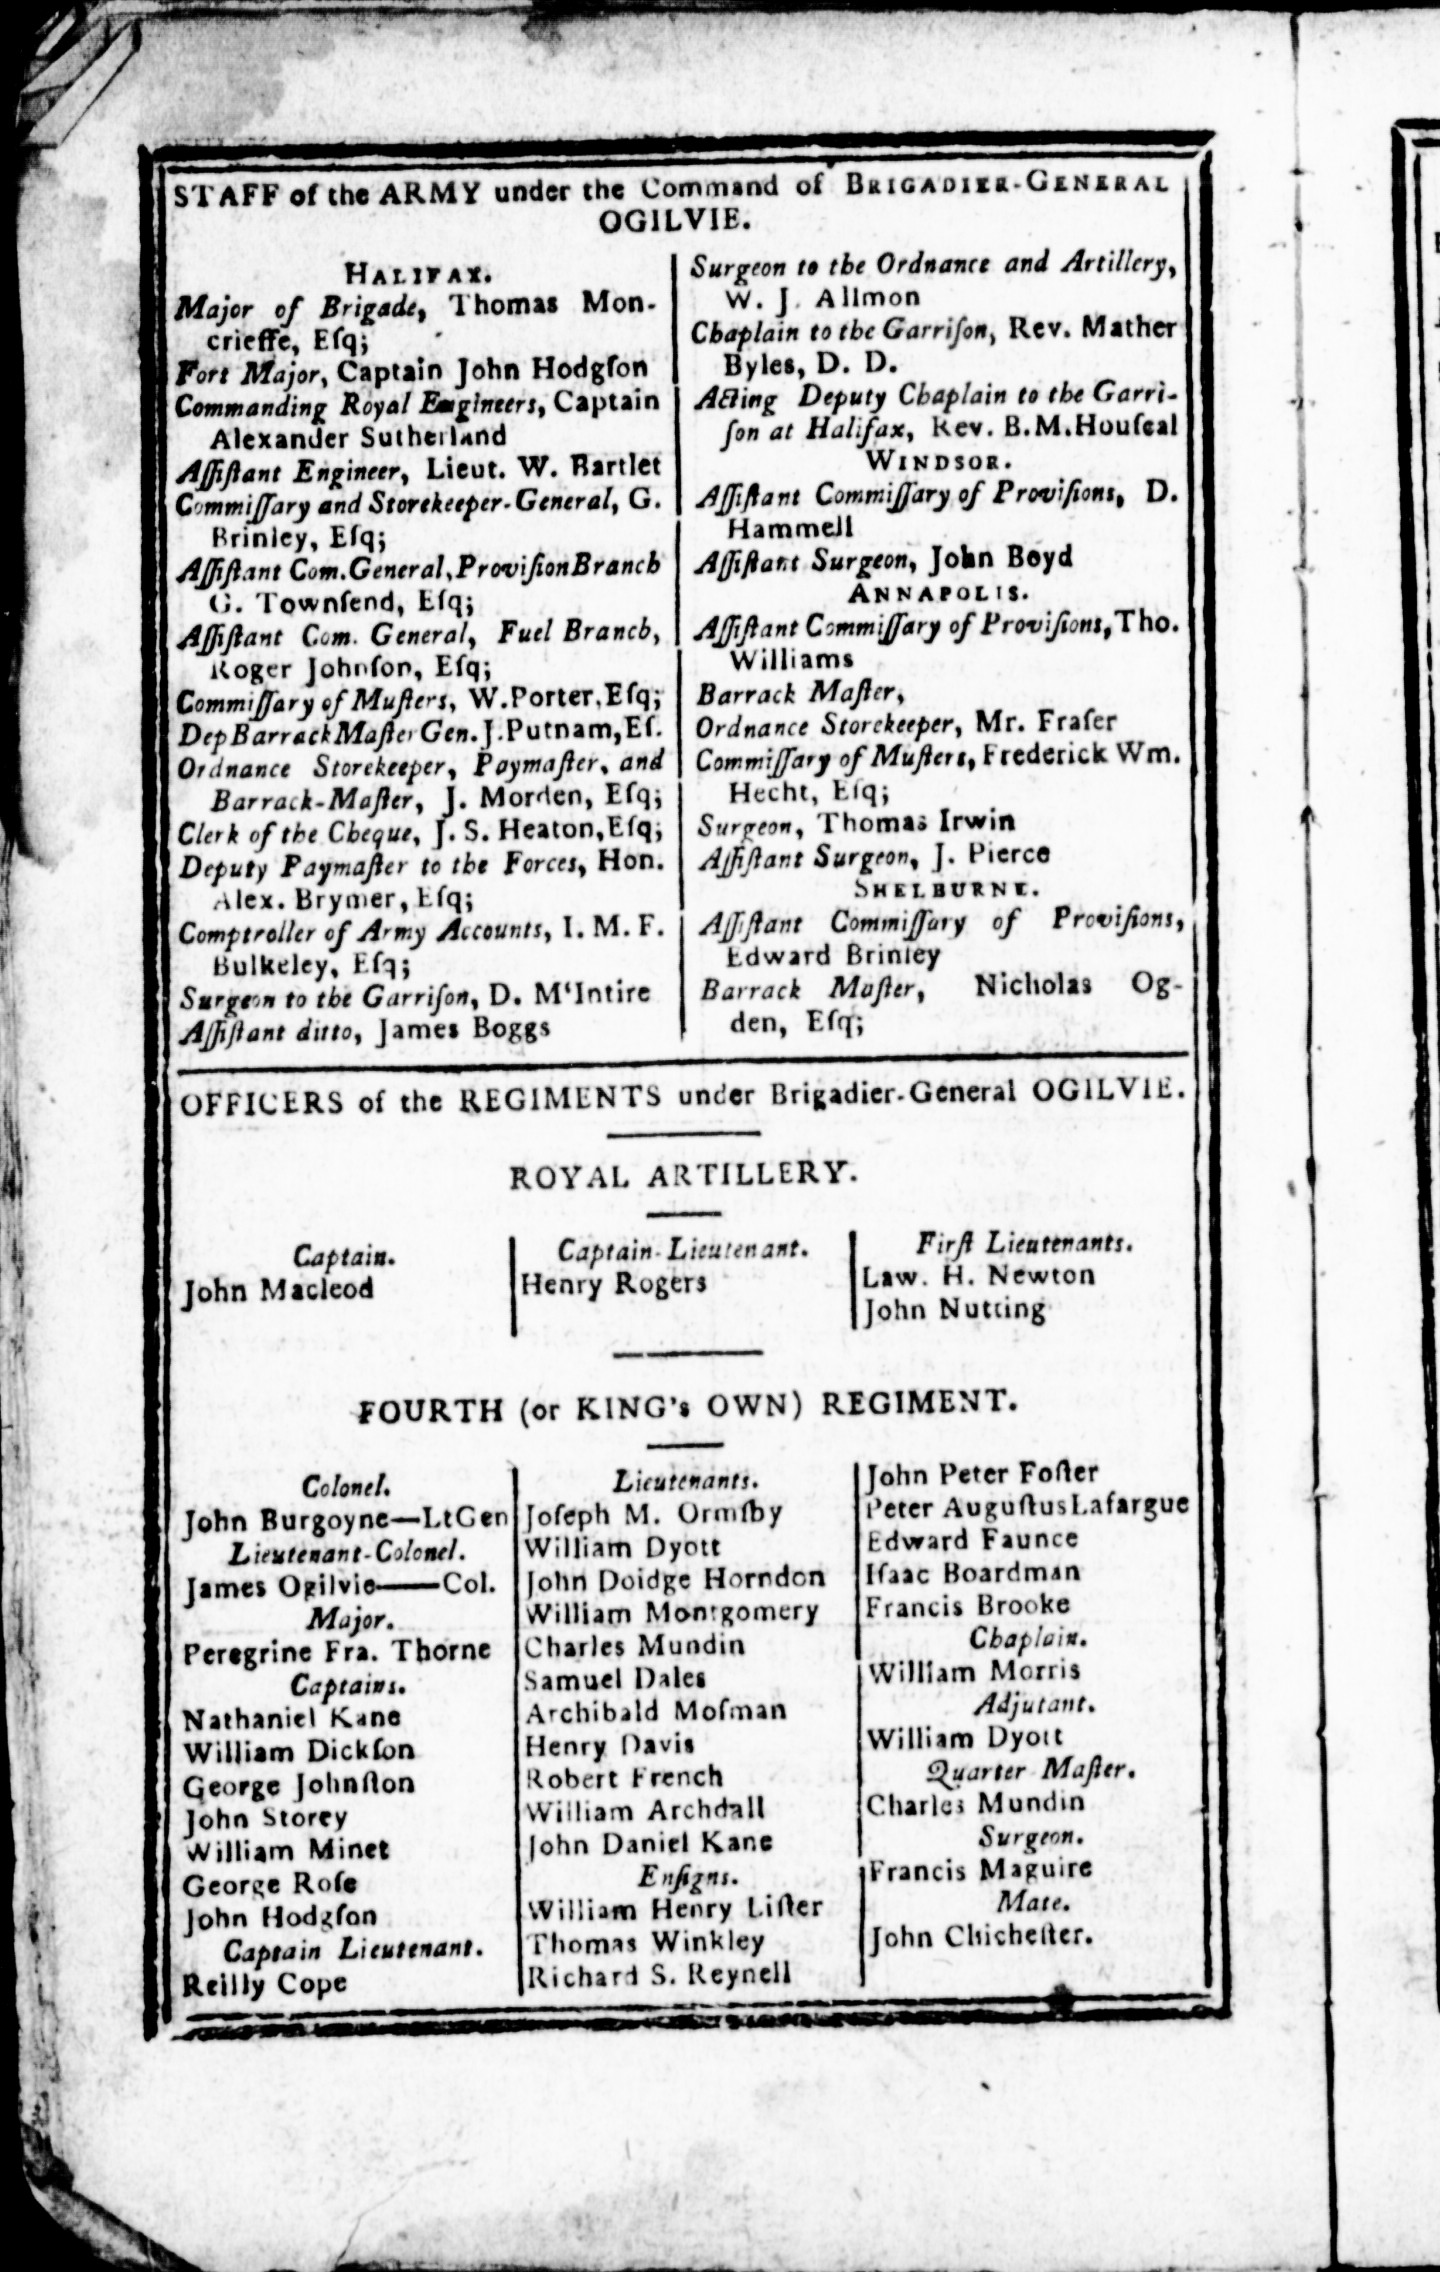 STAFF of the ARMY under the Command of BRIGADIER-GENERAL
OGILVIE.
HALIFAX.
Major of Brigade, Thomas Mon-
crieffe, Eſq;
Fort Major, Captain John Hodgſon
Commanding Royal Engineers, Captain
Alexander Sutherland
Aſſiſtant Engineer, Lieut. W. Bartlet
Commiſſary and Storekeeper-General, G.
Brinley, Eſq;
Aſſiſtant Com. General, Proviſion Branch
G. Townſend, Eſq;
Aſſiſtant Com. General, Fuel Branch,
Roger Johnſon, Eſq;
Commiſſary of Muſters, W. Porter, Eſq;
Dep Barrack Maſter Gen. J. Putnam, Eſ.
Ordnance Storekeeper, Paymaſter, and
Barrack-Maſter, J. Morden, Eſq;
Clerk of the Cheque, J. S. Heaton, Eſq;
Deputy Paymaſter to the Forces, Hon.
Alex. Brymer, Eſq;
Comptroller of Army Accounts, I. M. F.
Bulkeley, Eſq;
Surgeon to the Garriſon, D. M‘Intire
Aſſiſtant ditto, James Boggs
Surgeon to the Ordnance and Artillery,
W. J. Allmon
Chaplain to the Garriſon, Rev. Mather
Byles, D. D.
Acting Deputy Chaplain to the Garri-
ſon at Halifax, Rev. B. M. Houſeal
WINDSOR.
Aſſiſtant Commiſſary of Proviſions, D.
Hammell
Aſſiſtant Surgeon, John Boyd
ANNAPOLIS.
Aſſiſtant Commiſſary of Proviſions, Tho.
Williams
Barrack Maſter,
Ordnance Storekeeper, Mr. Fraſer
Commiſſary of Muſters, Frederick Wm.
Hecht, Eſq;
Surgeon, Thomas Irwin
Aſſiſtant Surgeon, J. Pierce
SHELBURNE.
Aſſiſtant Commiſſary of Proviſions,
Edward Brinley
Barrack Maſter, Nicholas Og-
den, Eſq;
OFFICERS of the REGIMENTS under Brigadier-General OGILVIE.
ROYAL ARTILLERY.
Captain.
John Macleod
Captain-Lieutenant.
Henry Rogers
Firſt Lieutenants.
Law. H. Newton
John Nutting
FOURTH (or KING's OWN) REGIMENT.
Colonel.
John Burgoyne—LtGen
Lieutenant-Colonel.
James Ogilvie——Col.
Major.
Peregrine Fra. Thorne
Captains.
Nathaniel Kane
William Dickſon
George Johnſton
John Storey
William Minet
George Roſe
John Hodgſon
Captain Lieutenant.
Reilly Cope
Lieutenants.
Joſeph M. Ormſby
William Dyott
John Doidge Horndon
William Montgomery
Charles Mundin
Samuel Dales
Archibald Moſman
Henry Davis
Robert French
William Archdall
John Daniel Kane
Enſigns.
William Henry Liſter
Thomas Winkley
Richard S. Reynell
John Peter Foſter
Peter Auguſtus Lafargue
Edward Faunce
Iſaac Boardman
Francis Brooke
Chaplain.
William Morris
Adjutant.
William Dyott
Quarter Maſter.
Charles Mundin
Surgeon.
Francis Maguire
Mate.
John Chicheſter.